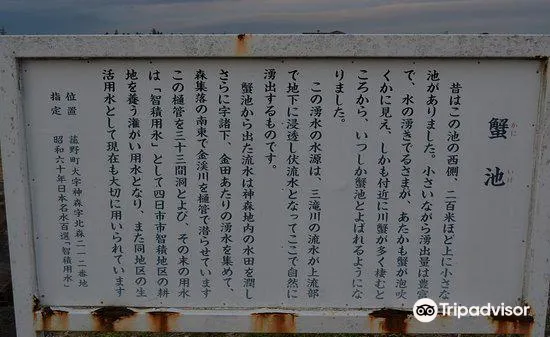 蟹池
かに いけ
昔はこの池の西側、二百米ほど上に小さな
池がありました。小さいながら湧出量は豊富
で、水の湧きでるさまが、あたかも蟹が泡吹
くかに見え、しかも付近に川蟹が多く棲むと
ころから、いつしか蟹池とよばれるようにな
りました。
この湧水の水源は、三滝川の流水が上流部
で地下に浸透し伏流水となってここで自然に
湧出するものです。
蟹池から出た流水は神森地内の水田を潤し
さらに字諸下、金田あたりの湧水を集めて、
森集落の南東で金渓川を樋管で潜らせています
この樋管を三十三間洞とよび、その末の用水
は「智積用水」として四日市市智積地区の耕
地を養う灌がい用水となり、また同地区の生
活用水として現在も大切に用いられています
位置 菰野町大字神森字北森二一一二番地
指定 昭和六十年日本名水百選「智積用水」
Tripadvisor